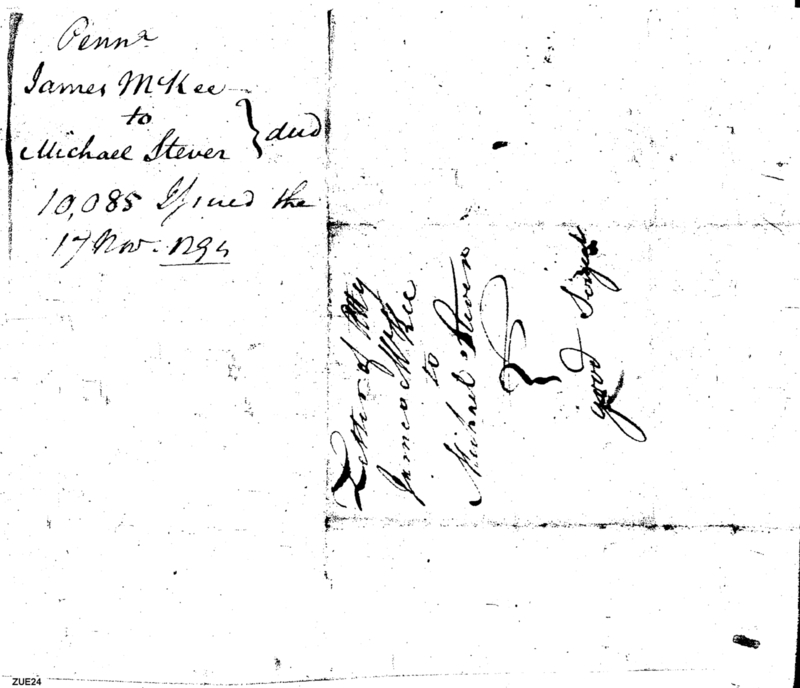 Penna
James McKee
to
Michael Stever } deed
10,085 Issued the
17 Nov. 1794
Letter of Atty
James McKee
to
Michael Stever
good
ZUE24